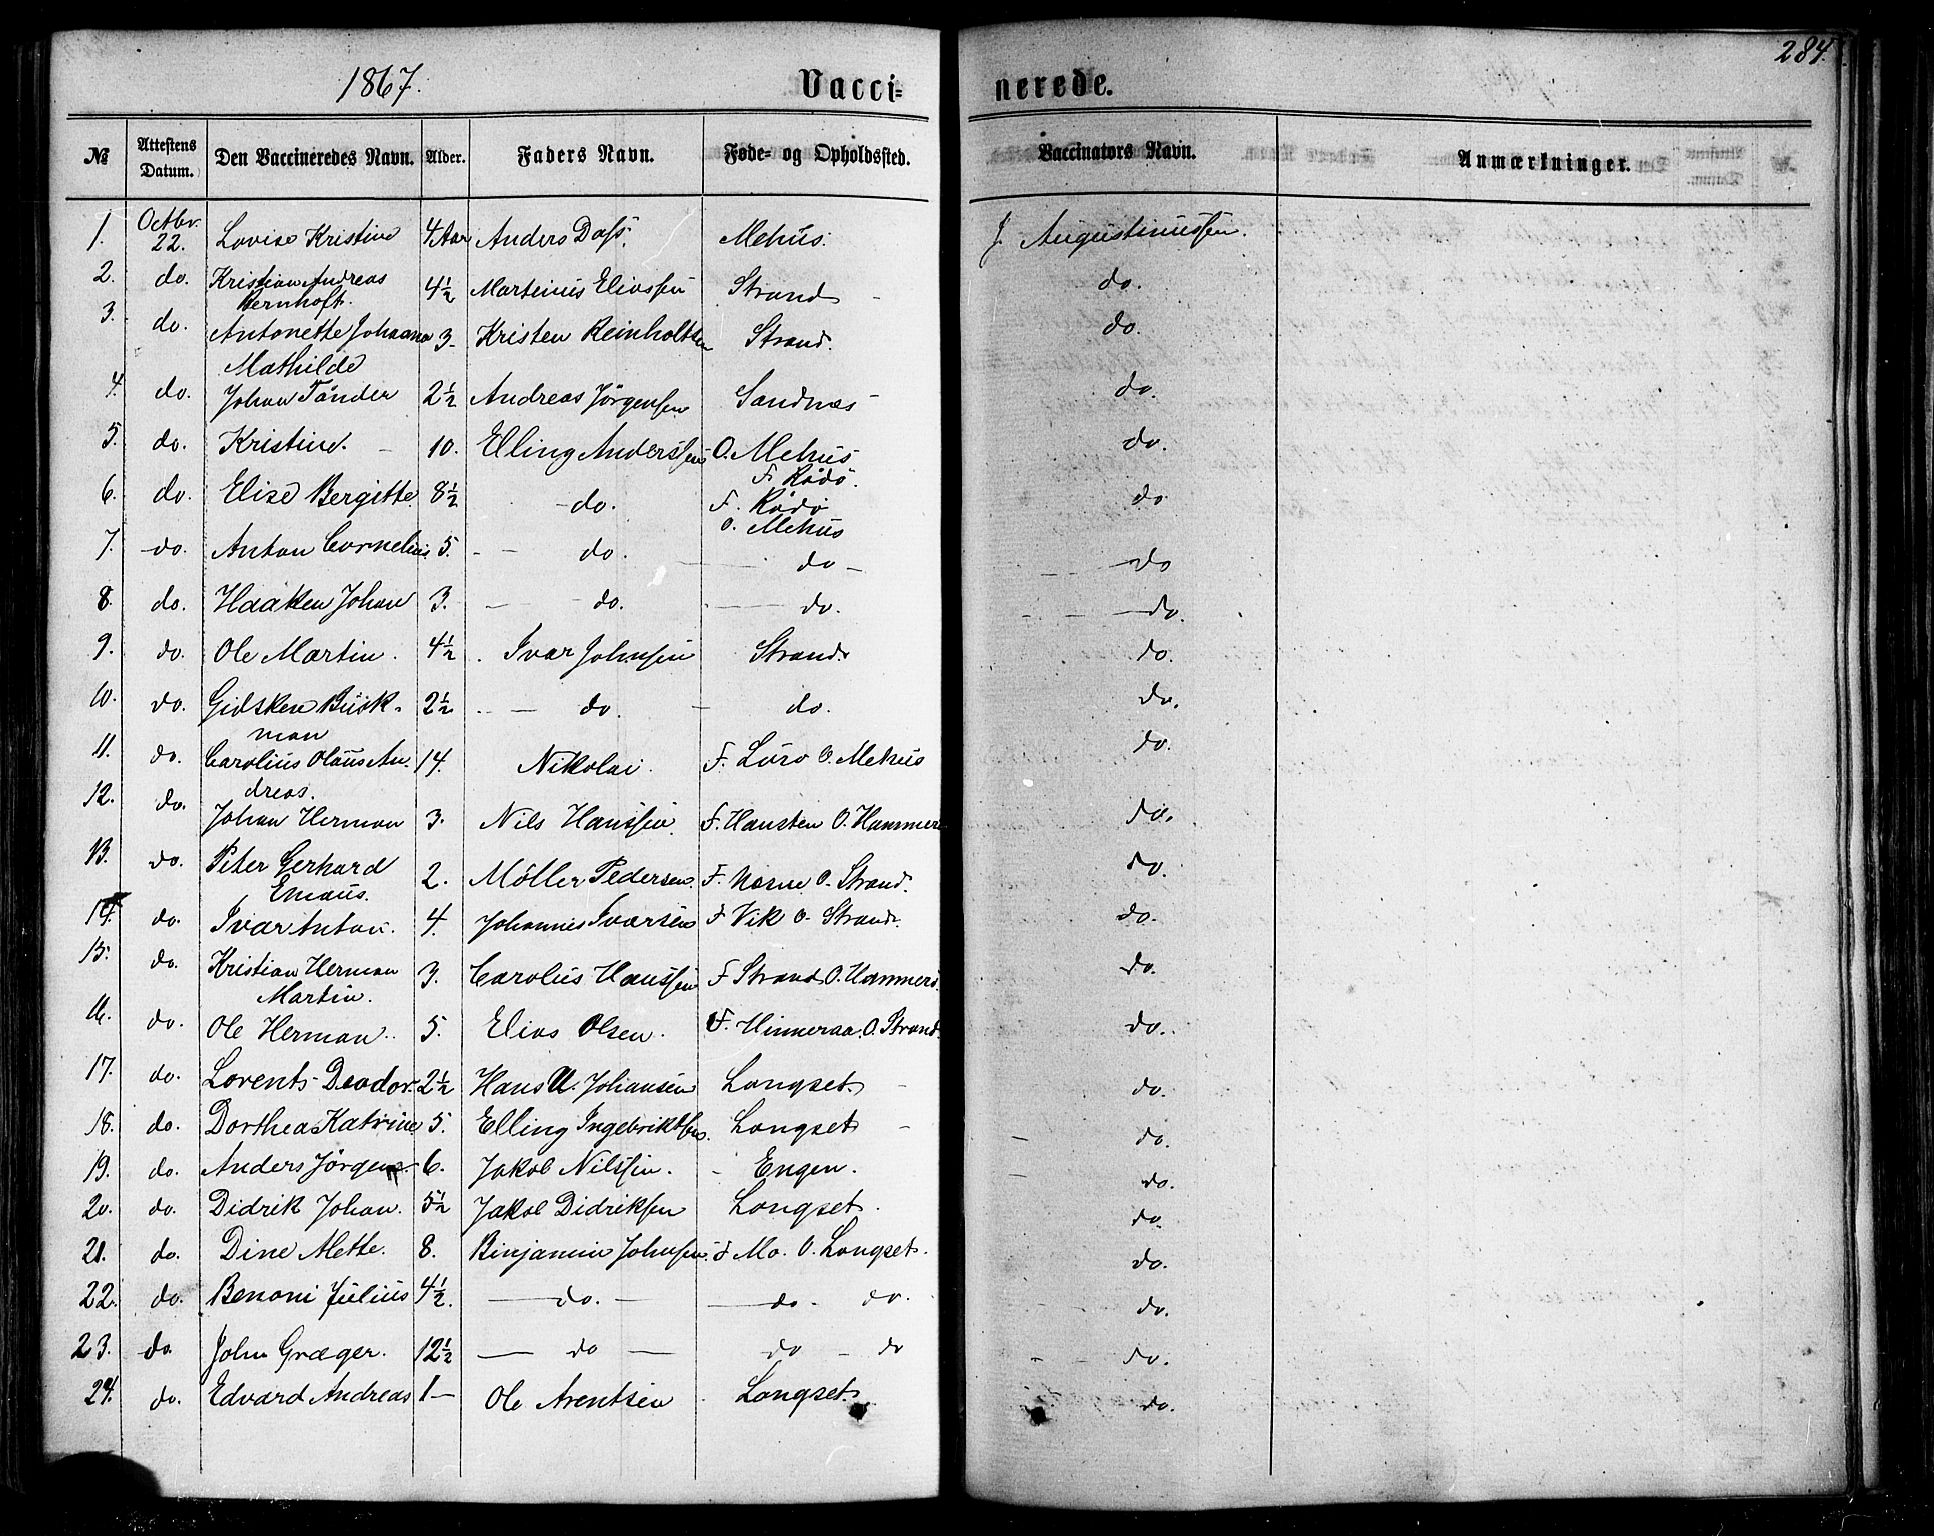 1867.
Vacci-
nerede.
284.
№ Attestens Datum. Den Vaccineredes Navn. Alder. Faders Navn. Føde- og Opholdssted. Vaccinators Navn. Anmærkninger.
1. Octbr. 22. Lovise Kristine 4 Aar Anders Dass. Mehus. J. Augustinussen.
2. do. Kristian Andreas Bernhoft. 4½ Martinus Eliassen Strand do.
3. do. Antonette Johanna Mathilde 3. Kristen Reinholtsen Strand. do.
4. do. Johan Tönder 2½ Andreas Jörgensen Sandnes do.
5. do. Kristine. 10. Elling Anderssen O. Mehus F. Rödö. do.
6. do. Elise Bergitte. 8½ do. F. Rödö O. Mehus do
7. do. Anton Cornelius. 5. do. do do
8. do. Haaken Johan 3. do. do. do.
9. do. Ole Martin. 4½ Ivar Johnsen Strand. do.
10. do. Gidsken Buckman 2½ do. do. do.
11. do. Carolius Olaus Andreas. 14. Nikolai. F. Lurö O. Mehus do.
12. do. Johan Herman 3. Nils Hanssen. F. Hansten O. Hammerö do.
13. do. Peter Gerhard Emaus. 2. Möller Pedersen. F. Nesne O. Strand. do.
14. do. Ivar Anton. 4. Johannes Ivarsen F Vik O. Strand. do.
15. do. Kristian Herman Martin. 3. Carolus Hanssen F Strand O. Hammerö. do.
16. do. Ole Herman. 5. Elias Olsen. F. Hinneraa. O. Strand. do.
17. do. Lorents Deodor. 2½ Hans U. Johansen Langset. do.
18. do. Dorthea Katrine 5. Elling Ingebriktsen. Langset do.
19. do. Anders Jörgen 6. Jakob Nilssen. Engen. do.
20. do. Didrik Johan. 5½ Jakob Didriksen Langset. do.
21. do. Dine Mette. 8. Binjamin Johnsen. F Mo. O. Langset. do.
22. do. Benoni Julius 4½. do. do. do. do.
23. do. John Græger. 12½ do do do do.
24. do. Edvard Andreas 1 Ole Arentsen Langset. do.